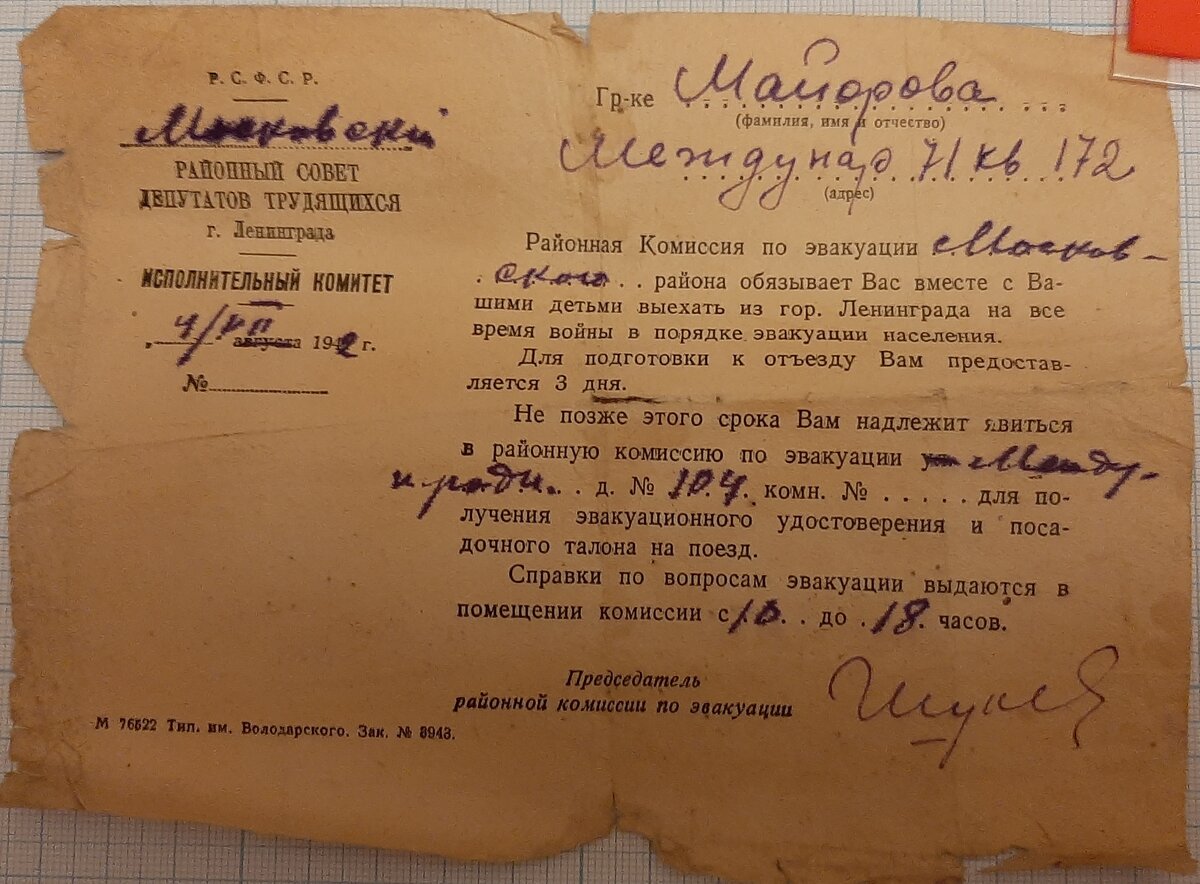 Р. С. Ф. С. Р.
Московский
РАЙОННЫЙ СОВЕТ
ДЕПУТАТОВ ТРУДЯЩИХСЯ
г. Ленинграда
ИСПОЛНИТЕЛЬНЫЙ КОМИТЕТ
„ 4/VII августа 1942 г.
№
Гр-ке Майорова
(фамилия, имя и отчество)
Междунар 71 кв 172
(адрес)
Районная Комиссия по эвакуации Москов-
ского района обязывает Вас вместе с Ва-
шими детьми выехать из гор. Ленинграда на все
время войны в порядке эвакуации населения.
Для подготовки к отъезду Вам предостав-
ляется 3 дня.
Не позже этого срока Вам надлежит явиться
в районную комиссию по эвакуации ул Между-
д. № 104 комн. № ..... для по-
лучения эвакуационного удостоверения и поса-
дочного талона на поезд.
Справки по вопросам эвакуации выдаются в
помещении комиссии с 10 до 18 часов.
Председатель
районной комиссии по эвакуации
М 76522 Тип. им. Володарского. Зак. № 8943.